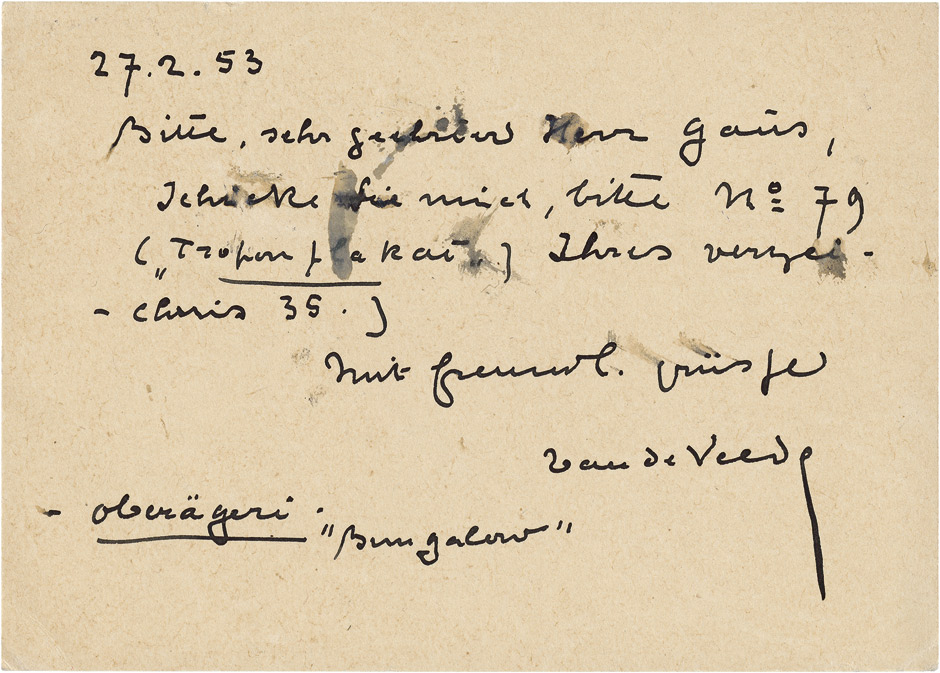 27.2.53
Bitte, sehr geehrter Herr Gaüs,
Schicke Sie mich, bitte No 79
(„Tropon plakat„) Ihres verzei-
- chnis 35.)
Mit freundl. grüsse
van de Velde
- oberägeri.
"Bungalow"